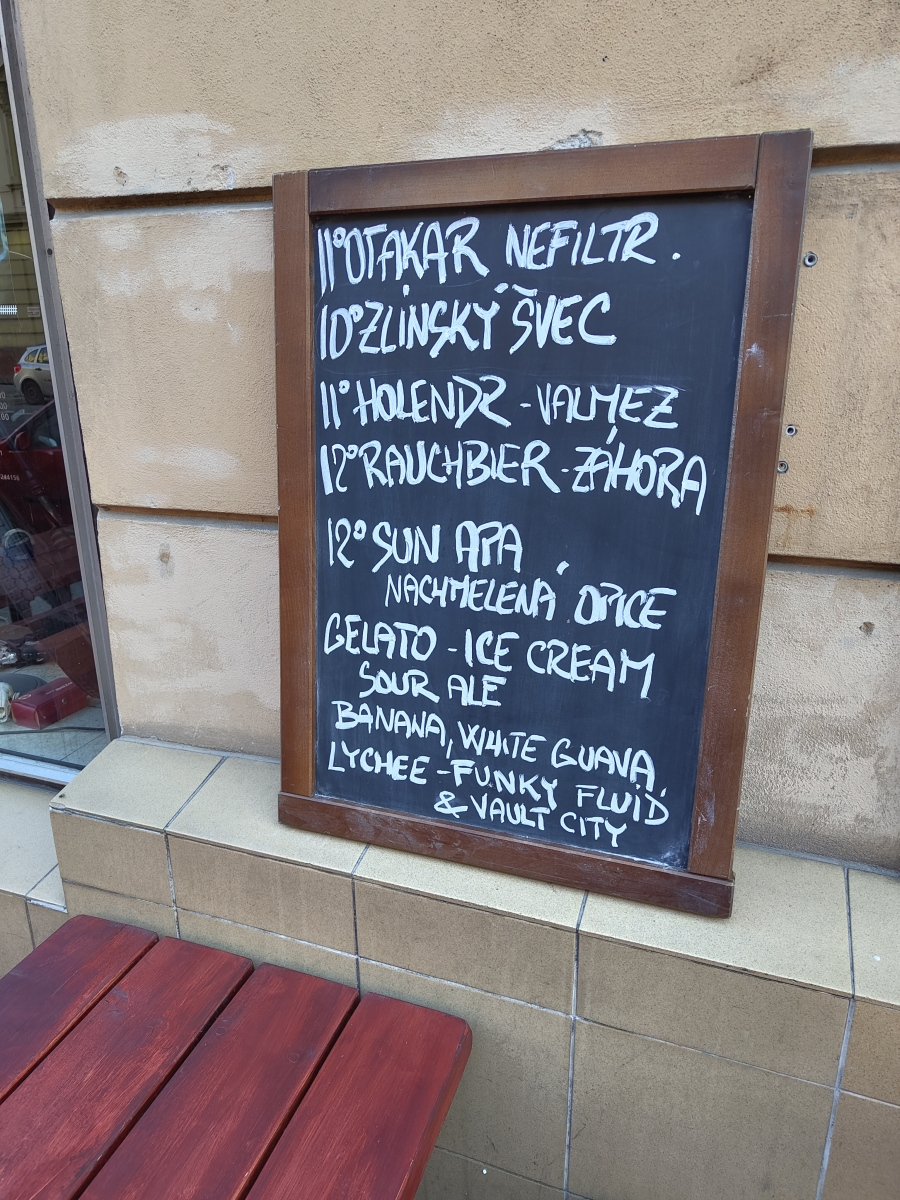 11° OTAKAR NEFILTR.
10° ZLÍNSKÝ ŠVEC
11° HOLENDR - VALMEZ
12° RAUCHBIER - ZÁHORA
12° SUN APA
NACHMELENÁ OPICE
GELATO - ICE CREAM
SOUR ALE
BANANA, WHITE GUAVA,
LYCHEE - FUNKY FLUID
& VAULT CITY